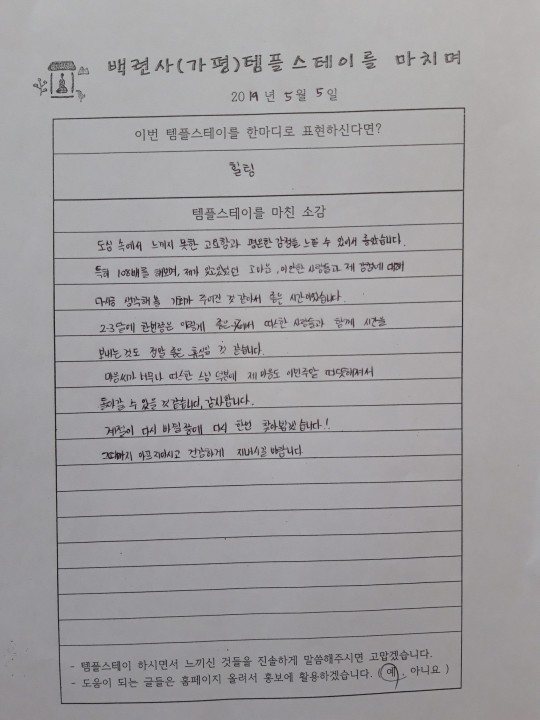 백련사(가평)템플스테이를 마치며
2019년 5월 5일
이번 템플스테이를 한마디로 표현하신다면?
힐링
템플스테이를 마친 소감
도심 속에서 느끼지 못한 고요함과 평온한 감정을 느낄 수 있어서 좋았습니다.
특히 108배를 해보며, 제가 잊고있었던 고마움, 미안한 사람들과 제 감정에 대해
다시금 생각해볼 기회가 주어진 것 같아서 좋은 시간이었습니다.
2-3달에 한번쯤은 이렇게 좋은 곳에서 따스한 사람들과 함께 시간을
보내는것도 정말 좋은 휴식일 것 같습니다.
마음씨가 너무나 따스한 스님 덕분에 제 마음도 이번주말 따뜻해져서
돌아갈 수 있을 것 같습니다, 감사합니다.
계절이 다시 바뀔 쯤에 다시 한번 찾아뵙겠습니다.!
그때까지 아프지마시고 건강하게 지내시길 바랍니다
- 템플스테이 하시면서 느끼신 것들을 진솔하게 말씀해주시면 고맙겠습니다.
- 도움이 되는 글들은 홈페이지 올려서 홍보에 활용하겠습니다. (예, 아니요 )